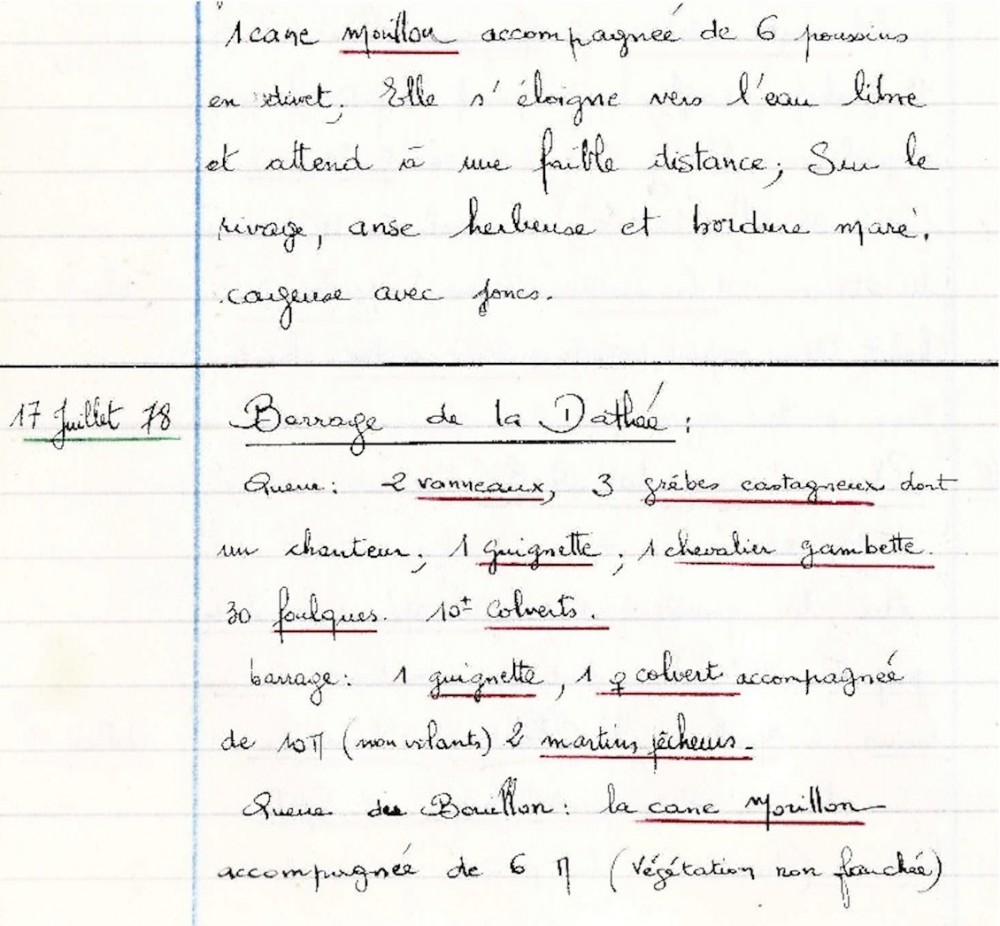 1 cane morillon accompagnée de 6 poussins
en duvet. Elle s'éloigne vers l'eau libre
et attend à une faible distance; Sur le
rivage, anse herbeuse et bordure maré.
cageuse avec joncs.
17 Juillet 78 Barrage de la Dathée :
Queue : 2 vanneaux, 3 grèbes castagneux dont
un chanteur; 1 guignette ; 1 chevalier gambette.
30 foulques. 10± colverts.
barrage : 1 guignette, 1 ♀ colvert accompagnée
de 10 Π (non volants) 2 martins pêcheurs.
Queue du Bouillon : la cane Morillon
accompagnée de 6 Π (végétation non fauchée)